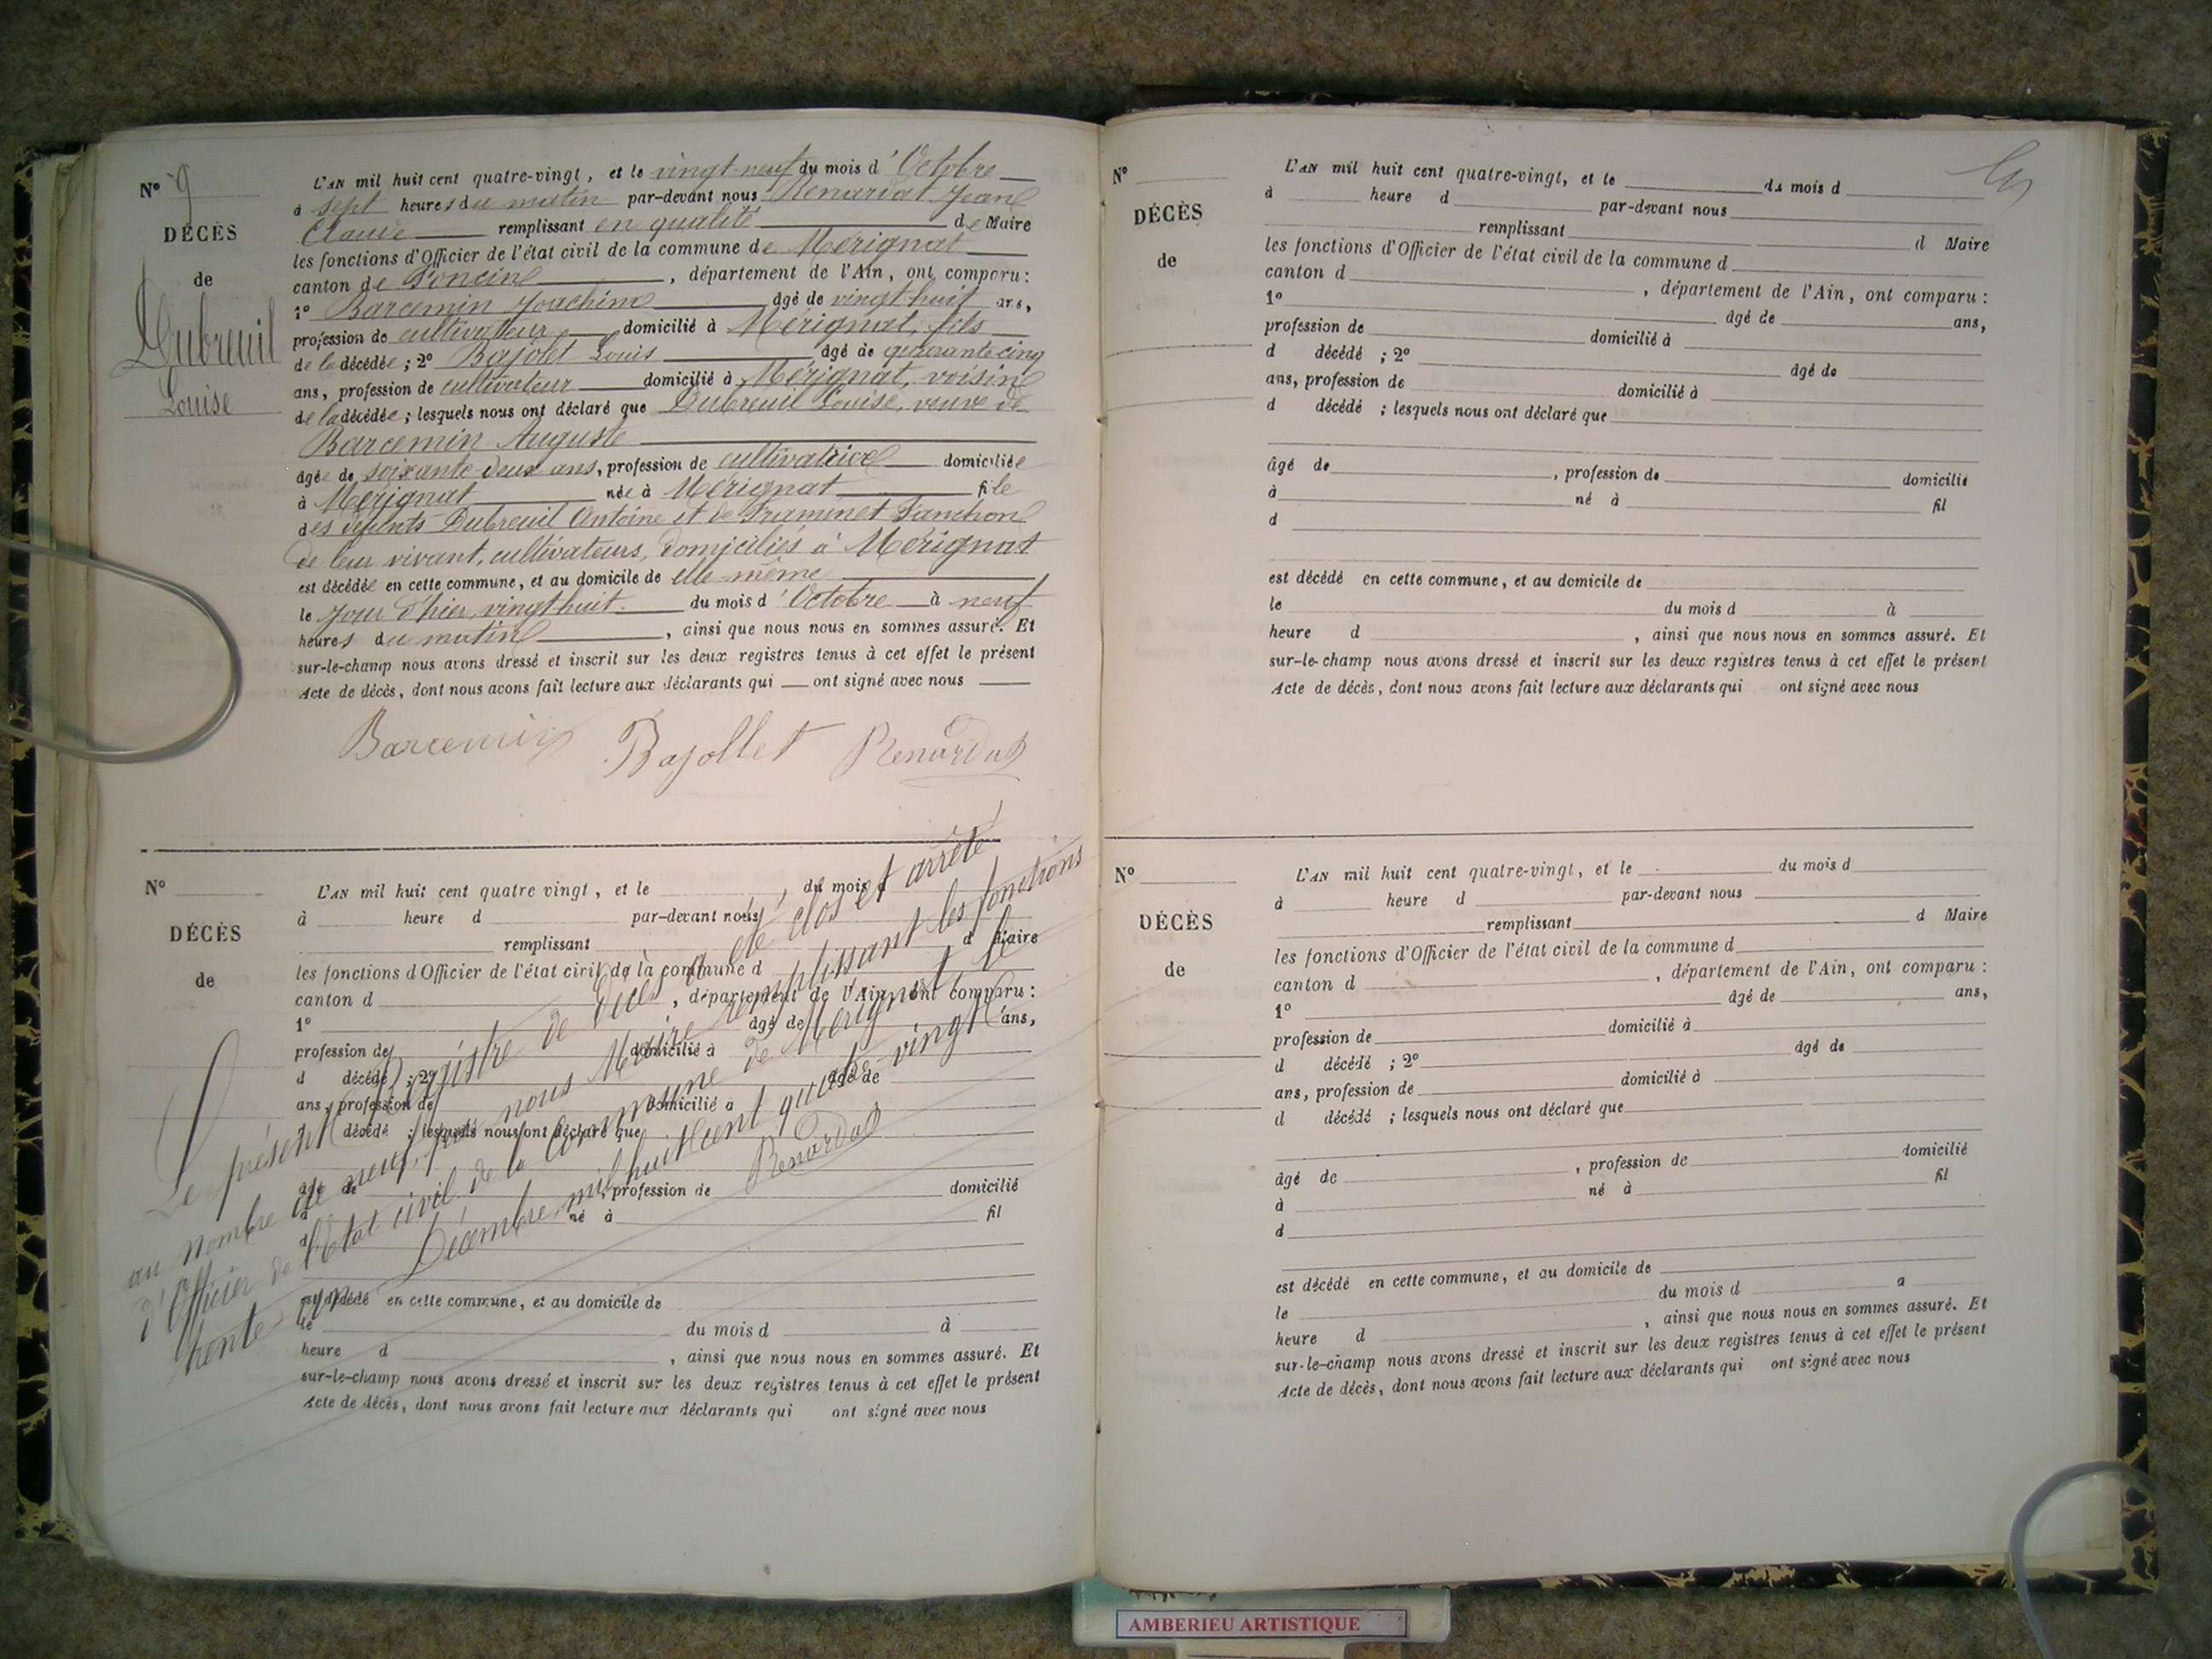 N° 9
DÉCÈS
de
Dubreuil
Louise
L'AN mil huit cent quatre-vingt, et le vingt-neuf du mois d'Octobre
à sept heures du matin par-devant nous Renardat Jean
Claude remplissant en qualité de Maire
les fonctions d'Officier de l'état civil de la commune de Mérignat
canton de Poncin, département de l'Ain, ont comparu:
1° Barcemin Joachim âgé de vingt huit ans,
profession de cultivateur domicilié à Mérignat, fils
de la décédée; 2° Bajolet Louis âgé de quarante cinq
ans, profession de cultivateur domicilié à Mérignat, voisin
de la décédée; lesquels nous ont déclaré que Dubreuil Louise, veuve de
Barcemin Auguste
âgée de soixante-deux ans, profession de cultivatrice domiciliée
à Mérignat née à Mérignat fille
des défunts Dubreuil Antoine et de Framinet Fanchon
de leur vivant, cultivateurs, domiciliés à Mérignat
est décédée en cette commune, et au domicile de elle même
le jour d'hier, vingt huit du mois d'Octobre à neuf
heures du matin, ainsi que nous nous en sommes assuré. Et
sur-le-champ nous avons dressé et inscrit sur les deux registres tenus à cet effet le présent
Acte de décès, dont nous avons fait lecture aux déclarants qui ont signé avec nous
Barcemin Bajollet Renardat
N°
DÉCÈS
de
L'AN mil huit cent quatre vingt, et le du mois d
à heure d par-devant nous
remplissant d Maire
les fonctions d'Officier de l'état civil de la commune d
canton d , département de l'Ain, ont comparu:
1° âgé de ans,
profession de domicilié à
d décédé ; 2° âgé de
ans, profession de domicilié à
d décédé ; lesquels nous ont déclaré que
âgé de , profession de domicilié
à né à fil
d
est décédé en cette commune, et au domicile de
le du mois d à
heure d , ainsi que nous nous en sommes assuré. Et
sur-le-champ nous avons dressé et inscrit sur les deux registres tenus à cet effet le présent
Acte de décès, dont nous avons fait lecture aux déclarants qui ont signé avec nous
Le présent Registre de Décès a été clos et arrêté
au nombre de neuf, par nous Maire remplissant les fonctions
d'Officier de l'Etat civil de la Commune de Mérignat le
trente un Décembre mil huit cent quatre-vingt
Renardat
N°
DÉCÈS
de
L'AN mil huit cent quatre-vingt, et le du mois d
à heure d par-devant nous
remplissant d Maire
les fonctions d'Officier de l'état civil de la commune d
canton d , département de l'Ain, ont comparu:
1° âgé de ans,
profession de domicilié à
d décédé ; 2° âgé de
ans, profession de domicilié à
d décédé ; lesquels nous ont déclaré que
âgé de , profession de domicilié
à né à fil
d
est décédé en cette commune, et au domicile de
le du mois d à
heure d , ainsi que nous nous en sommes assuré. Et
sur-le-champ nous avons dressé et inscrit sur les deux registres tenus à cet effet le présent
Acte de décès, dont nous avons fait lecture aux déclarants qui ont signé avec nous
N°
DÉCÈS
de
L'AN mil huit cent quatre-vingt, et le du mois d
à heure d par-devant nous
remplissant d Maire
les fonctions d'Officier de l'état civil de la commune d
canton d , département de l'Ain, ont comparu:
1° âgé de ans,
profession de domicilié à
d décédé ; 2° âgé de
ans, profession de domicilié à
d décédé ; lesquels nous ont déclaré que
âgé de , profession de domicilié
à né à fil
d
est décédé en cette commune, et au domicile de
le du mois d à
heure d , ainsi que nous nous en sommes assuré. Et
sur-le-champ nous avons dressé et inscrit sur les deux registres tenus à cet effet le présent
Acte de décès, dont nous avons fait lecture aux déclarants qui ont signé avec nous
AMBERIEU ARTISTIQUE